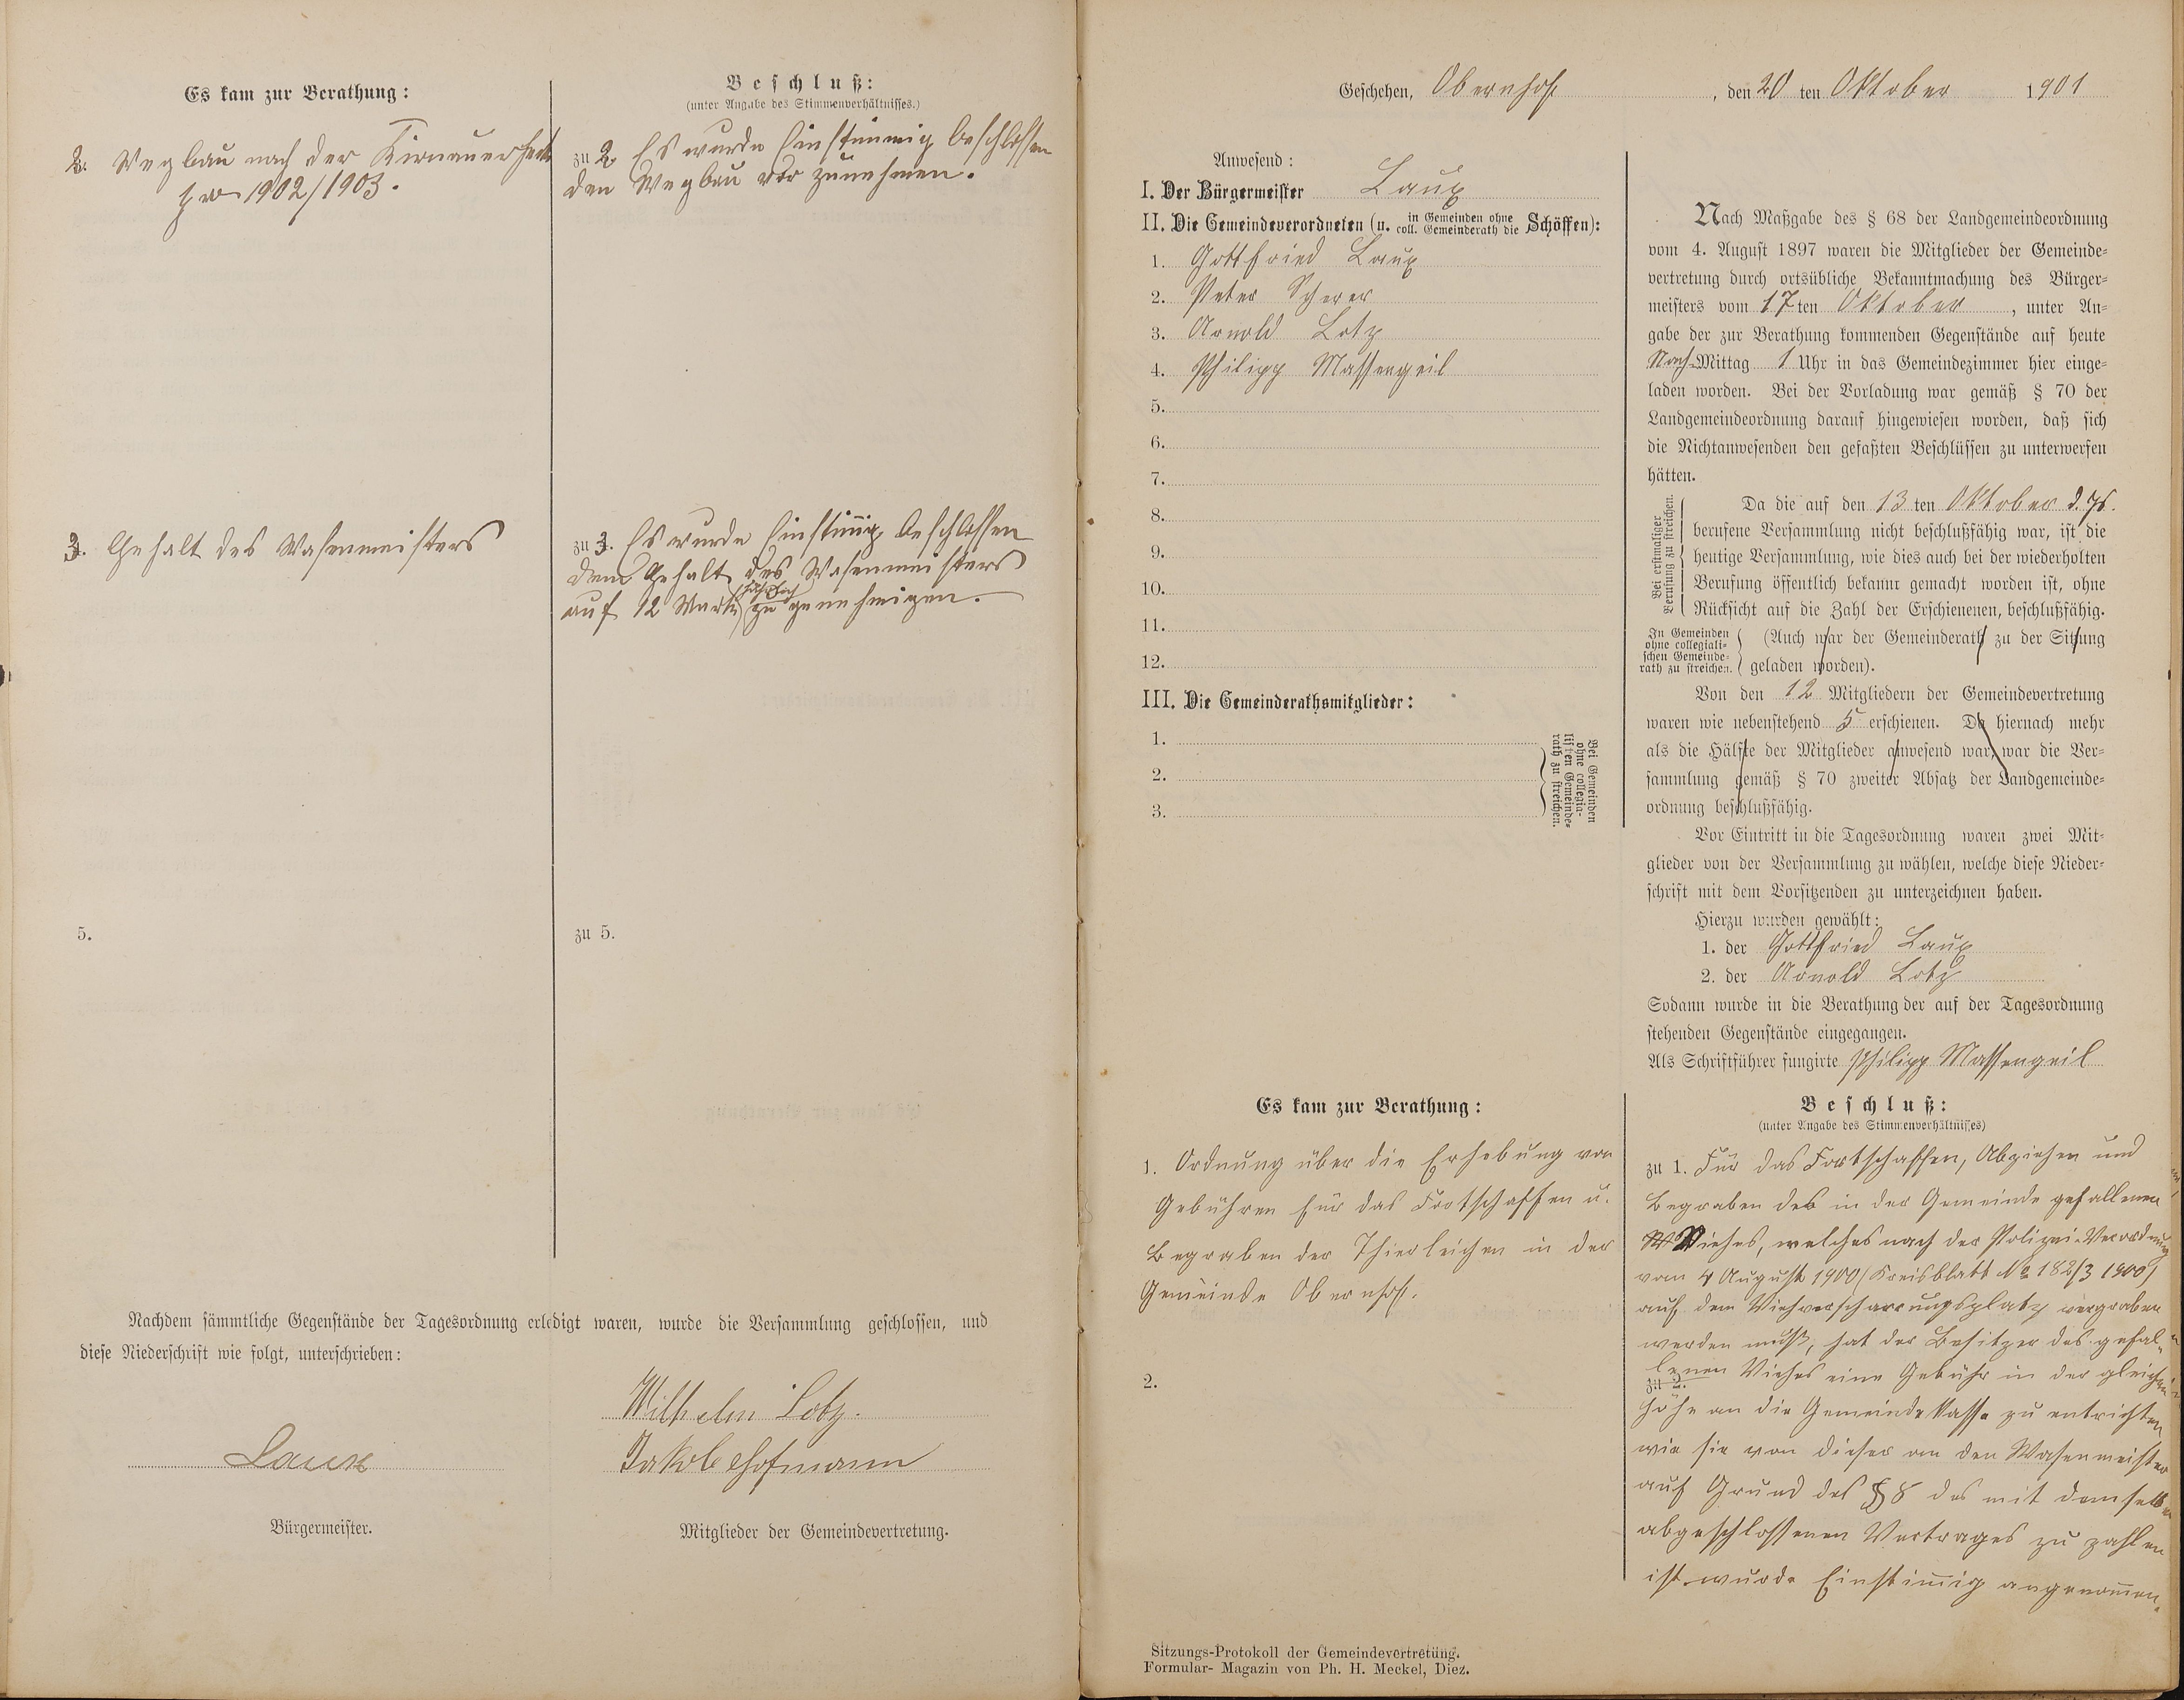 Es kam zur Berathung:
2. Wegbau nach der Kirnauerheck
pro 1902/1903.
3. Gehalt des Wasenmeisters
5.
Beschluß:
(unter Angabe des Stimmenverhältnisses.)
zu 2. Es wurde Einstimmig beschlossen
den Wegbau vor zunehmen.
zu 3. Es wurde Einstimig beschlossen
dem Gehalt des Wasenmeisters
auf 12 Mark jährlich zu genehmigen.
zu 5.
Nachdem sämmtliche Gegenstände der Tagesordnung erledigt waren, wurde die Versammlung geschlossen, und
diese Niederschrift wie folgt, unterschrieben:
Laux
Bürgermeister.
Wilhelm Lotz.
Jakob Hofmann
Mitglieder der Gemeindevertretung.
Geschehen, Obernhof, den 20 ten Oktober 1901
Anwesend:
I. Der Bürgermeister Laux
II. Die Gemeindeverordneten (u. in Gemeinden ohne coll. Gemeinderath die Schöffen):
1. Gottfried Laux
2. Peter Scherer
3. Arnold Lotz
4. Philipp Massengeil
5.
6.
7.
8.
9.
10.
11.
12.
III. Die Gemeinderathsmitglieder:
1.
2.
3.
Bei Gemeinden
ohne collegia-
lischen Gemeinde-
rath zu streichen.
Nach Maßgabe des § 68 der Landgemeindeordnung
vom 4. August 1897 waren die Mitglieder der Gemeinde-
vertretung durch ortsübliche Bekanntmachung des Bürger-
meisters vom 17 ten Oktober, unter An-
gabe der zur Berathung kommenden Gegenstände auf heute
Nach-Mittag 1 Uhr in das Gemeindezimmer hier einge-
laden worden. Bei der Vorladung war gemäß § 70 der
Landgemeindeordnung darauf hingewiesen worden, daß sich
die Nichtanwesenden den gefaßten Beschlüssen zu unterwerfen
hätten.
Bei erstmaliger
Berufung zu streichen.
Da die auf den 13 ten Oktober d. Js.
berufene Versammlung nicht beschlußfähig war, ist die
heutige Versammlung, wie dies auch bei der wiederholten
Berufung öffentlich bekannt gemacht worden ist, ohne
Rücksicht auf die Zahl der Erschienenen, beschlußfähig.
In Gemeinden
ohne collegiali-
schen Gemeinde-
rath zu streichen.
(Auch war der Gemeinderath zu der Sitzung
geladen worden).
Von den 12 Mitgliedern der Gemeindevertretung
waren wie nebenstehend 5 erschienen. Da hiernach mehr
als die Hälfte der Mitglieder anwesend war, war die Ver-
sammlung gemäß § 70 zweiter Absatz der Landgemeinde-
ordnung beschlußfähig.
Vor Eintritt in die Tagesordnung waren zwei Mit-
glieder von der Versammlung zu wählen, welche diese Nieder-
schrift mit dem Vorsitzenden zu unterzeichnen haben.
Hierzu wurden gewählt:
1. der Gottfried Laux
2. der Arnold Lotz
Sodann wurde in die Berathung der auf der Tagesordnung
stehenden Gegenstände eingegangen.
Als Schriftführer fungirte Philipp Massengeil
Es kam zur Berathung:
1. Ordnung über die Erhebung von
Gebühren für das Fortschaffen u.
Begraben der Thierleichen in der
Gemeinde Obernhof.
2.
Beschluß:
(unter Angabe des Stimmenverhältnisses)
zu 1. Für das Fortschaffen, Abziehen und
Begraben des in der Gemeinde gefallenen
Viehes, welches nach der Polizei-Verordnung
vom 4 August 1900 (Kreisblatt No 182/3 1900)
auf dem Viehverscharrungsplatz vergraben
werden muß, hat der Besitzer des gefal-
lenen Viehes eine Gebühr in der gleichen
zu 2.
Höhe an die Gemeindekasse zu entrichten
wie sie von dieser an den Wasenmeister
auf Grund des § 8 des mit demselben
abgeschlossenen Vertrages zu zahlen
ist. wurde Einstimig angenomen.
Sitzungs-Protokoll der Gemeindevertretung.
Formular- Magazin von Ph. H. Meckel, Diez.